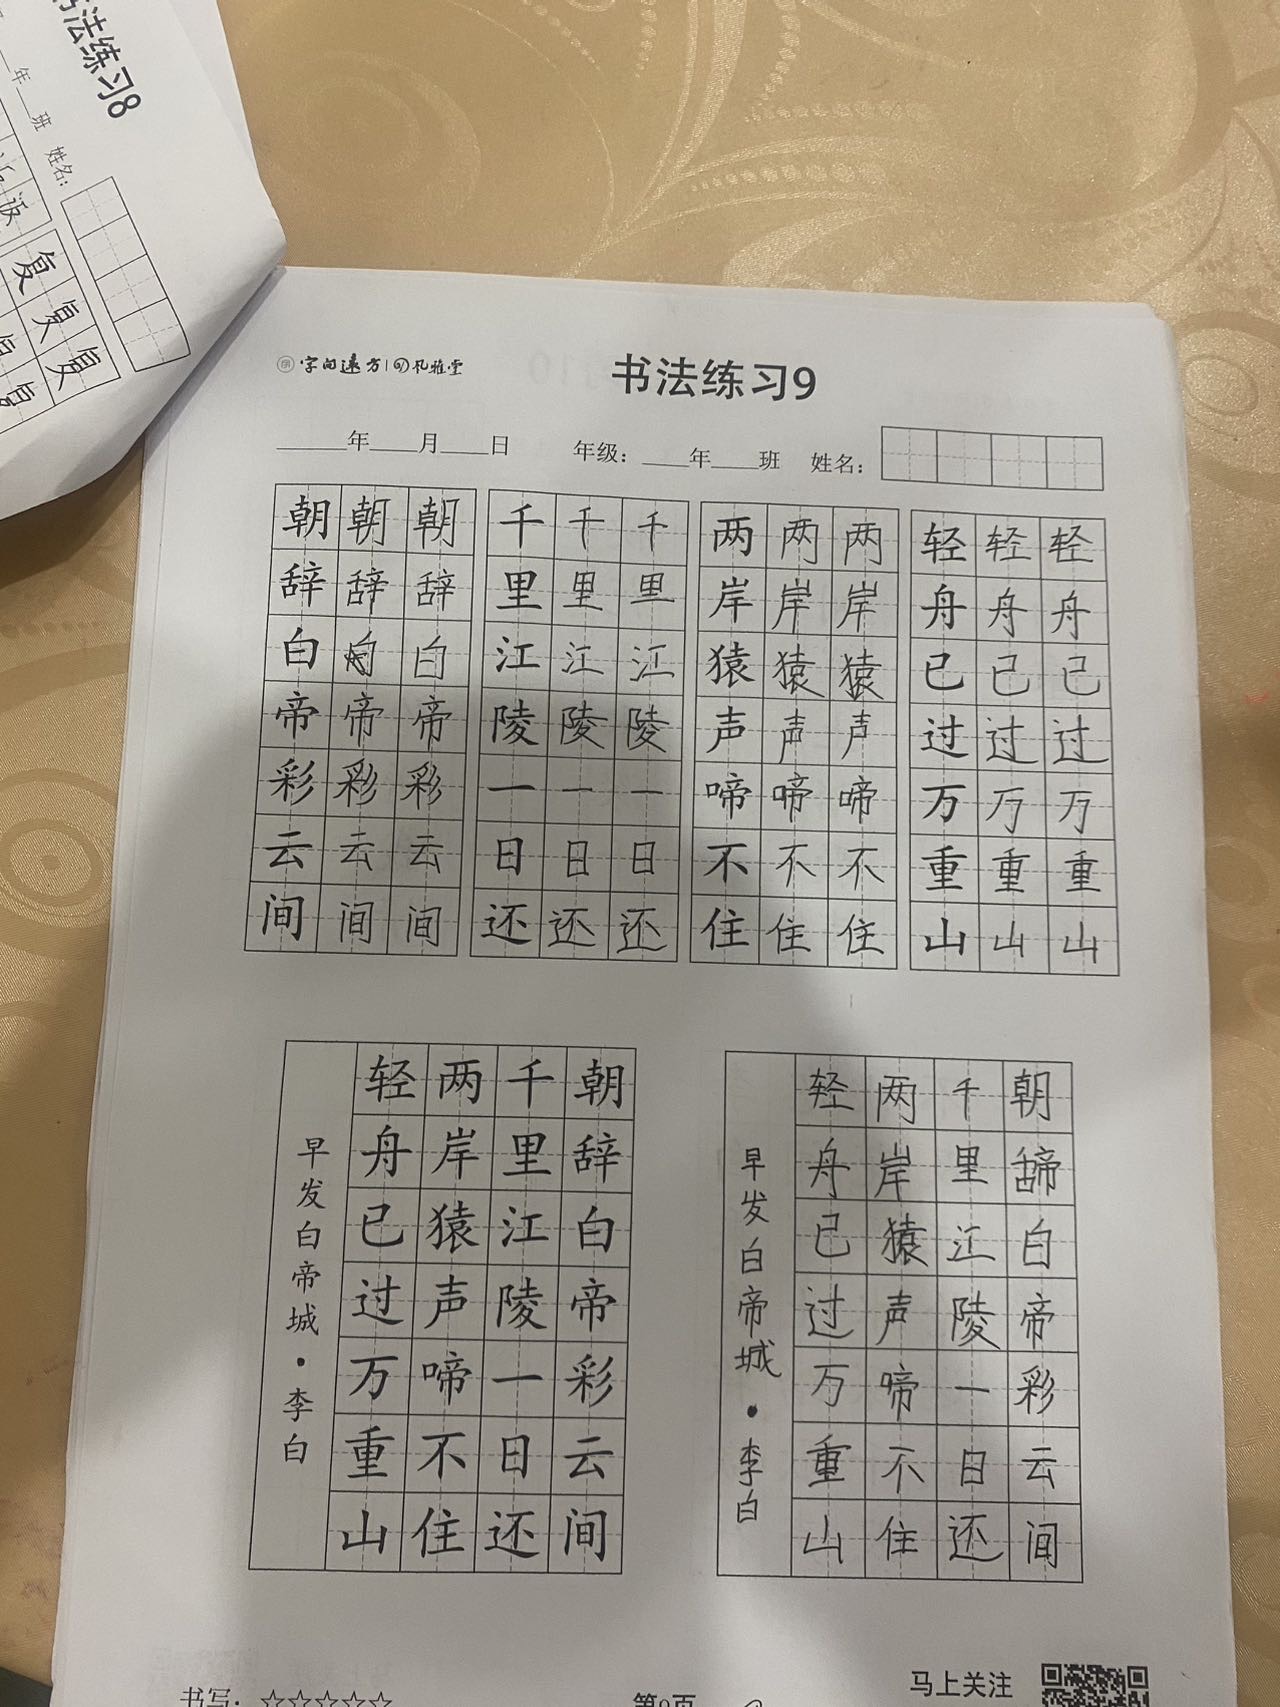 书法练习8
年 班 姓名:
返
复
复
复
字向远方 孔雅堂
书法练习9
年 月 日 年级: 年 班 姓名:
朝朝朝 千千千 两两两 轻轻轻
辞辞辞 里里里 岸岸岸 舟舟舟
白白白 江江江 猿猿猿 已已已
帝帝帝 陵陵陵 声声声 过过过
彩彩彩 一一一 啼啼啼 万万万
云云云 日日日 不不不 重重重
间间间 还还还 住住住 山山山
朝辞白帝彩云间
千里江陵一日还
两岸猿声啼不住
轻舟已过万重山
早发白帝城·李白
朝辞白帝彩云间
千里江陵一日还
两岸猿声啼不住
轻舟已过万重山
早发白帝城·李白
书写:☆☆☆☆☆
第9页
马上关注